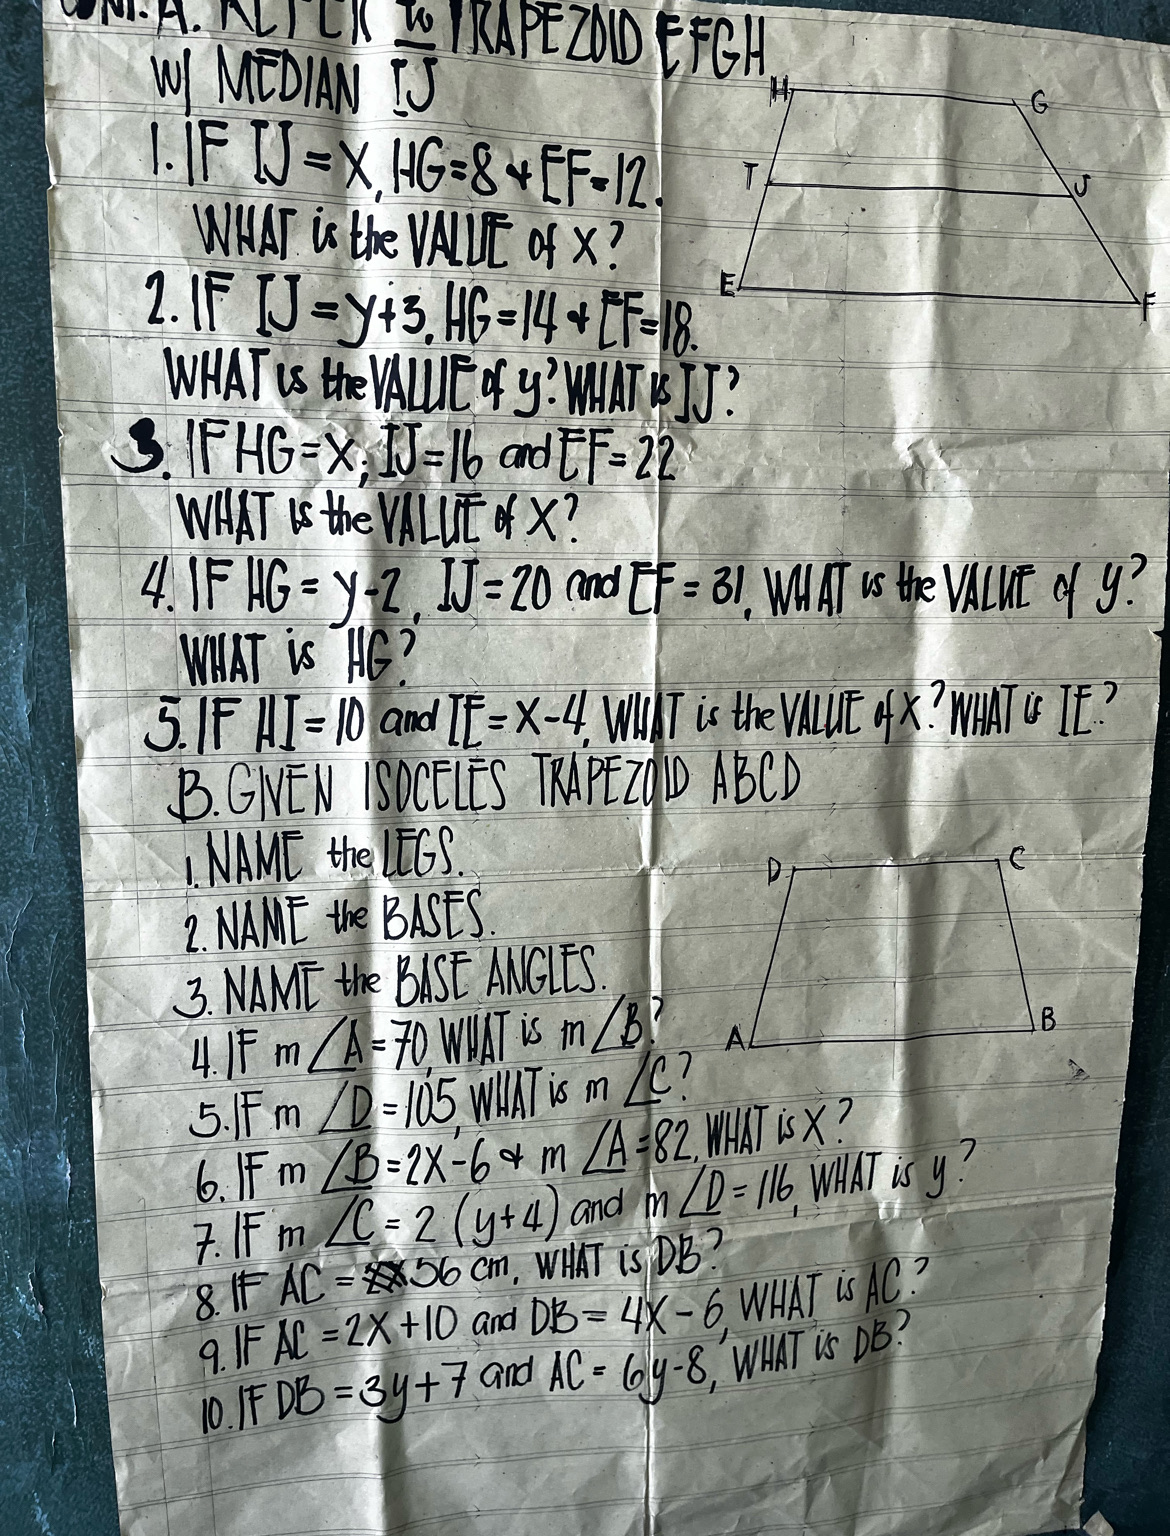 A. REFER to TRAPEZOID EFGH
W/ MEDIAN IJ
1. IF IJ = X, HG=8 & EF=12.
WHAT is the VALUE of X?
2. IF IJ = y+3, HG=14 & EF=18.
WHAT is the VALUE of y? WHAT is IJ?
3. IF HG=X; IJ=16 and EF=22
WHAT is the VALUE of X?
4. IF HG = y-2, IJ=20 and EF = 31, WHAT is the VALUE of y?
WHAT is HG?
5. IF HI=10 and IE=X-4, WHAT is the VALUE of X? WHAT is IE?
H
G
I
J
E
F
B. GIVEN ISOCELES TRAPEZOID ABCD
1. NAME the LEGS.
2. NAME the BASES.
3. NAME the BASE ANGLES.
4. IF m ∠A=70, WHAT is m ∠B?
5. IF m ∠D=105, WHAT is m ∠C?
6. IF m ∠B=2X-6 & m ∠A=82, WHAT is X?
7. IF m ∠C = 2 (y+4) and m ∠D=116, WHAT is y?
8. IF AC = 56 cm, WHAT is DB?
9. IF AC =2X+10 and DB= 4X-6, WHAT is AC?
10. IF DB =3y+7 and AC= 6y-8, WHAT is DB?
D
C
A
B